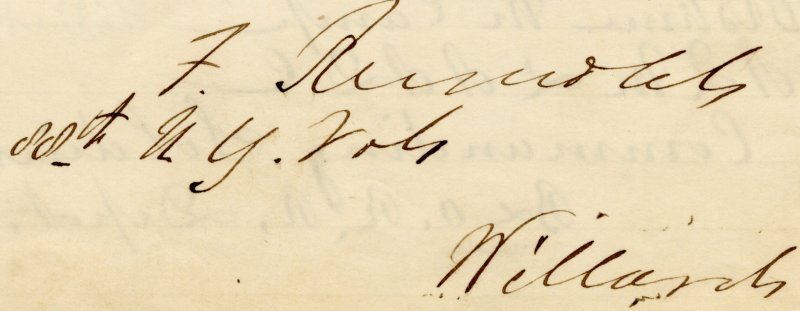 F. Reynolds
88th N.Y. Vols
Willards